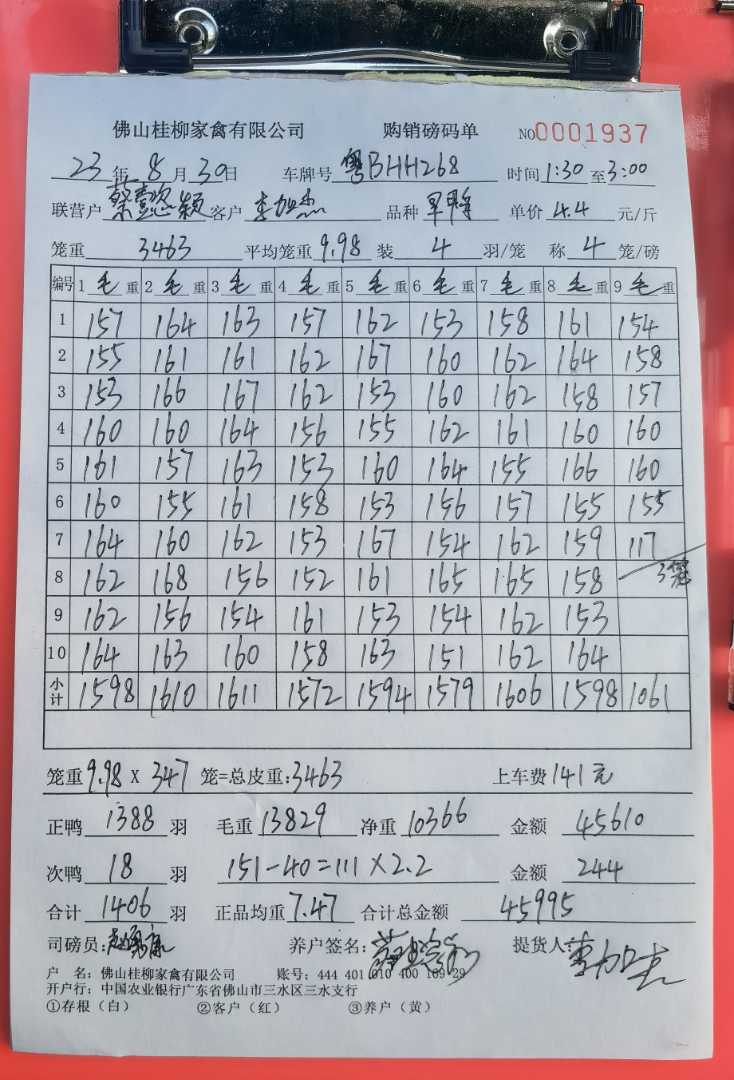 佛山桂柳家禽有限公司 购销磅码单 NO0001937
23年8月30日 车牌号 粤BHH268 时间1:30至3:00
联营户蔡懿颖 客户 李加杰 品种 单价 4.4 元/斤
笼重 3463 平均笼重9.98 装 4 羽/笼 称 4 笼/磅
编号 1 毛 重 2 毛 重 3 毛 重 4 毛 重 5 毛 重 6 毛 重 7 毛 重 8 毛 重 9 毛 重
1 157 164 163 157 162 153 158 161 154
2 155 161 161 162 167 160 162 164 158
3 153 166 167 162 153 160 162 158 157
4 160 160 164 156 155 162 161 160 160
5 161 157 163 153 160 164 155 166 160
6 160 155 161 158 153 156 157 155 155
7 164 160 162 153 167 154 162 159 117
8 162 168 156 152 161 165 165 158 3笼
9 162 156 154 161 153 154 162 153
10 164 163 160 158 163 151 162 164
小计 1598 1610 1611 1572 1594 1579 1606 1598 1061
笼重9.98 X 347 笼=总皮重:3463 上车费141元
正鸭 1388 羽 毛重13829 净重10366 金额 45610
次鸭 18 羽 151-40=111×2.2 金额 244
合计 1406 羽 正品均重7.47 合计总金额 45995
司磅员: 养户签名: 提货人:李加杰
户 名: 佛山桂柳家禽有限公司 账号: 444 401 010 400 169 29
开户行: 中国农业银行广东省佛山市三水区三水支行
①存根（白） ②客户（红） ③养户（黄）